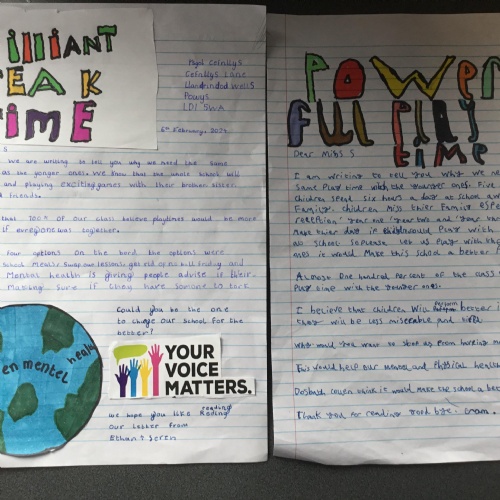 ILLIANT
EAK
TIME
Ysgol Cefnllys
Cefnllys Lane
Llandrindod Wells
Powys
LD1 5WA
6th February, 2024
S
We are writing to tell you why we need the same
as the yonger ones. We know that the whole school will
and playing exciting games with their brother sister
friends.
that 100% of our class believe playtimes would be more
if everyone was together.
Four options on the bord the options were
School Meals, Swap our lessons, get rid of no ball friday and
Mental health is giving people advise if their
Making sure if they have someone to talk
Could you be the one
to change our school for the
better?
en mentel healt
YOUR
VOICE
MATTERS.
We hope you like reading
our letter from
Ethan + Seren
POWER
FUL PlAY
time
Dear Miss S
I am writing to tell you why we ne
same Play time with the younger ones. Five
children spend six hours a day at school aw
Family. children miss thier Family espe
reception year one, year two and year
make thier day in the
no school. So please let us play with th
ones it would make this school a better
Almost one hundred percent of the class
play time with the younger ones.
I believe that children will perform better i
they will be less miserable and tired
Why would you want to stop us from having mo
This would help our mental and physical health
think it would make the school a bet
Thank you for reading good bye.